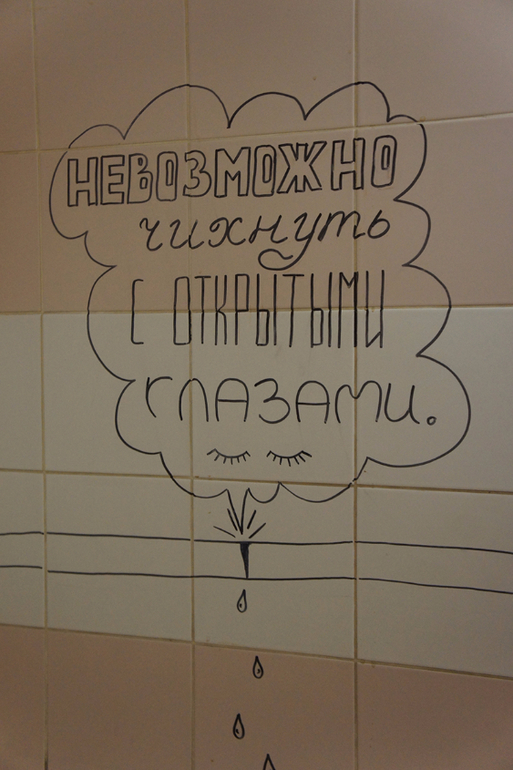 НЕВОЗМОЖНО
чихнуть
С ОТКРЫТЫМИ
ГЛАЗАМИ.